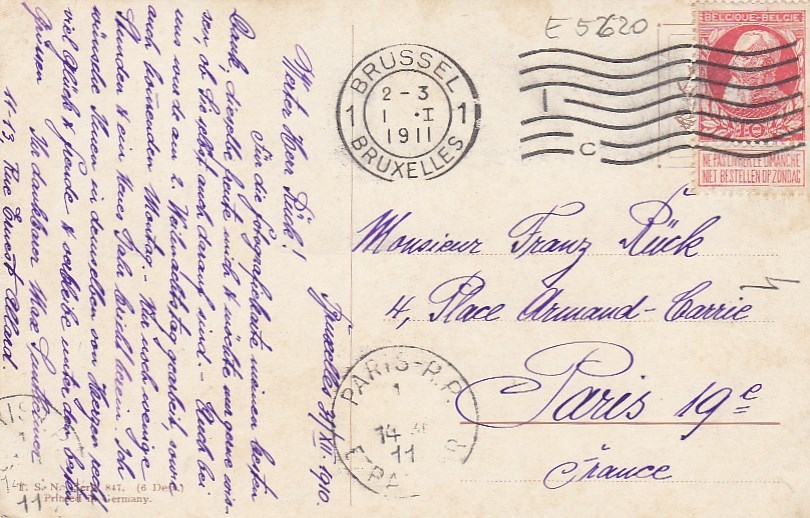 E 5620
BRUSSEL
2 - 3
1 1 .I 1
1911
BRUXELLES
C
BELGIQUE-BELGIE
10
NE PAS LIVRER LE DIMANCHE
NIET BESTELLEN OP ZONDAG
Monsieur Franz Rück
4, Place Armand-Carrie
Paris 19e
France
PARIS-R.P.
1
14
11
ETRANGER
Bruxelles 31/XII. 1910.
Werter Herr Rück!
Für die fotografiekarte meinen besten
Dank, dieselbe freute mich & möchte nur gerne wis-
sen, ob Sie selbst auch darauf sind. - Auch bei
uns wurde am 2. Weihnachtstag gearbeit, sowie
auch kommenden Montag. - Nur noch wenige
Stunden & ein Neues Jahr bricht herein. Ich
wünsche Ihnen in demselben von Herzen recht
viel Glück & freude & verbleibe unter den besten
Grüssen Ihr dankbarer Max
11-13, Rue Ernest Allard.
T. S. N. Serie 847. (6 Dess.)
Printed in Germany.
14
11